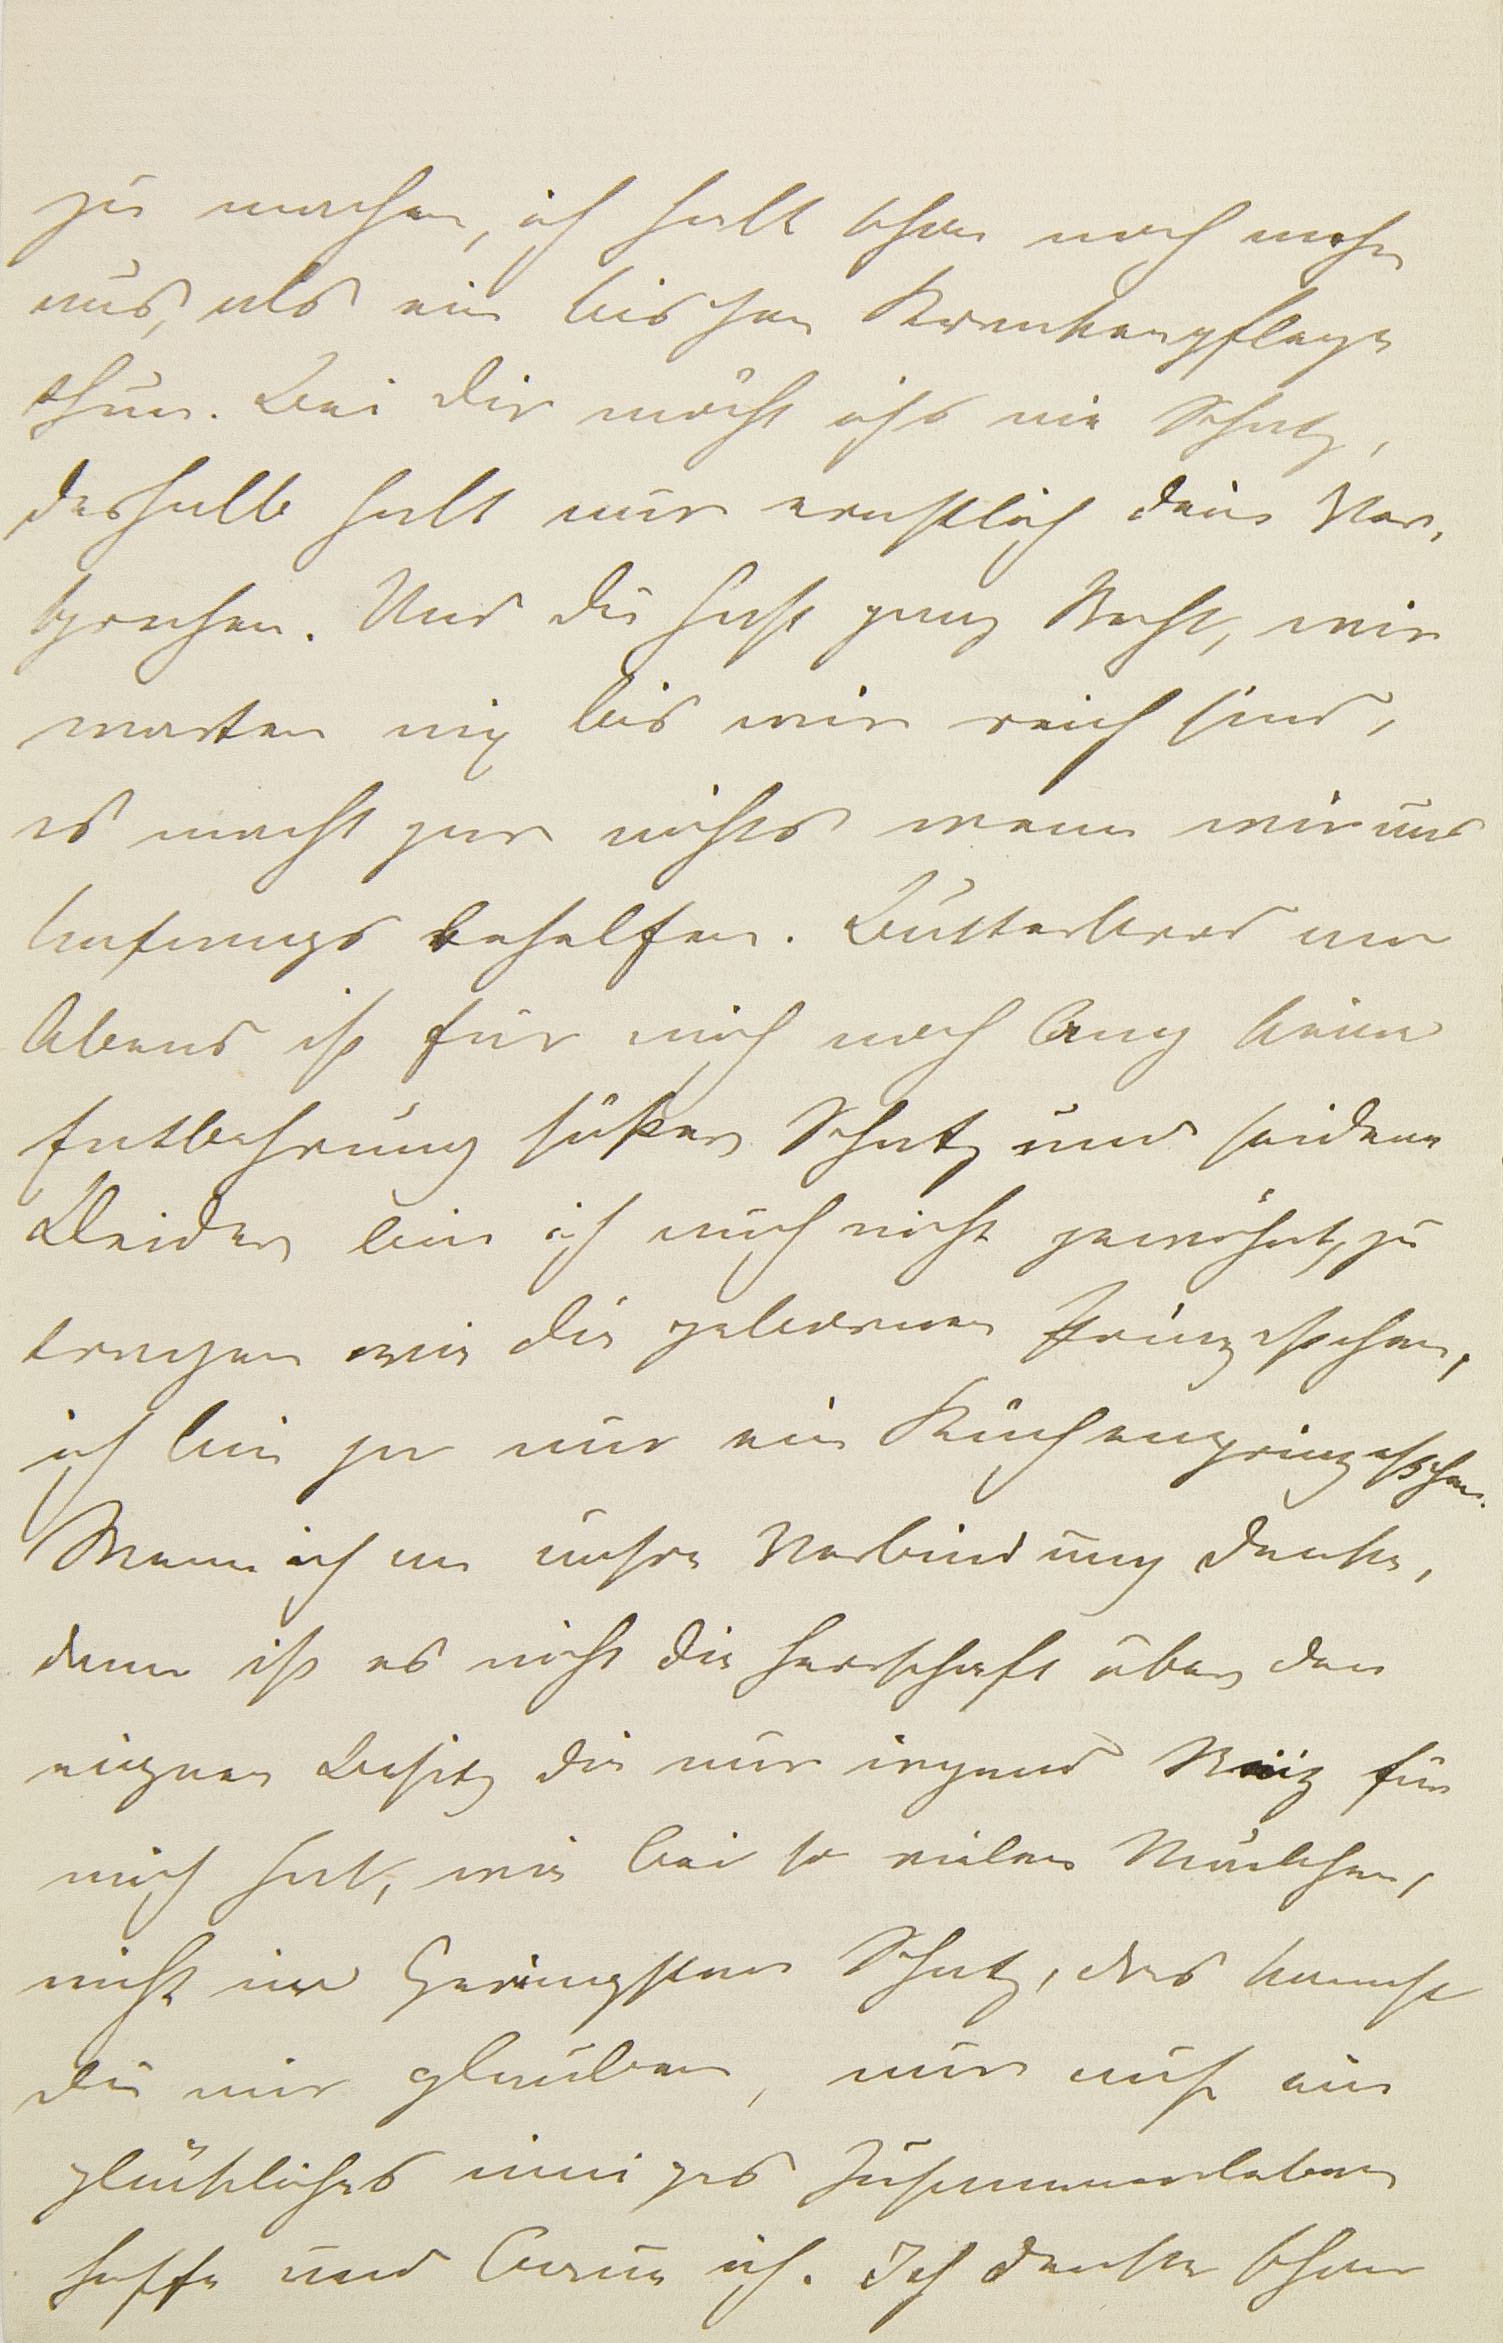 zu machen, ich halt schon noch mehr
aus, als ein bischen Krankenpflege
thun. Bei dir möcht ichs nie Schatz,
deshalb halt nur ernstlich dein Ver-
sprechen. Und du hast ganz Recht, wir
warten nix bis wir reich sind,
es macht gar nichts wenn wir uns
anfangs behelfen. Butterbrod am
Abend ist für mich noch lang keine
Entbehrung süßer Schatz und seidene
Kleider bin ich auch nicht gewöhnt, zu
tragen wie die geborenen Prinzesschen,
ich bin ja nur ein Küchenprinzesschen.
Wenn ich an unsre Verbindung denke,
dann ist es nicht die Herrschaft über den
eignen Besitz die nur irgend Reiz für
mich hat, wie bei so vielen Mädchen,
nicht im Geringsten Schatz, das kannst
du mir glauben, nur auf ein
glückliches inniges Zusammenleben
hoffe und baue ich. Ich denke schon